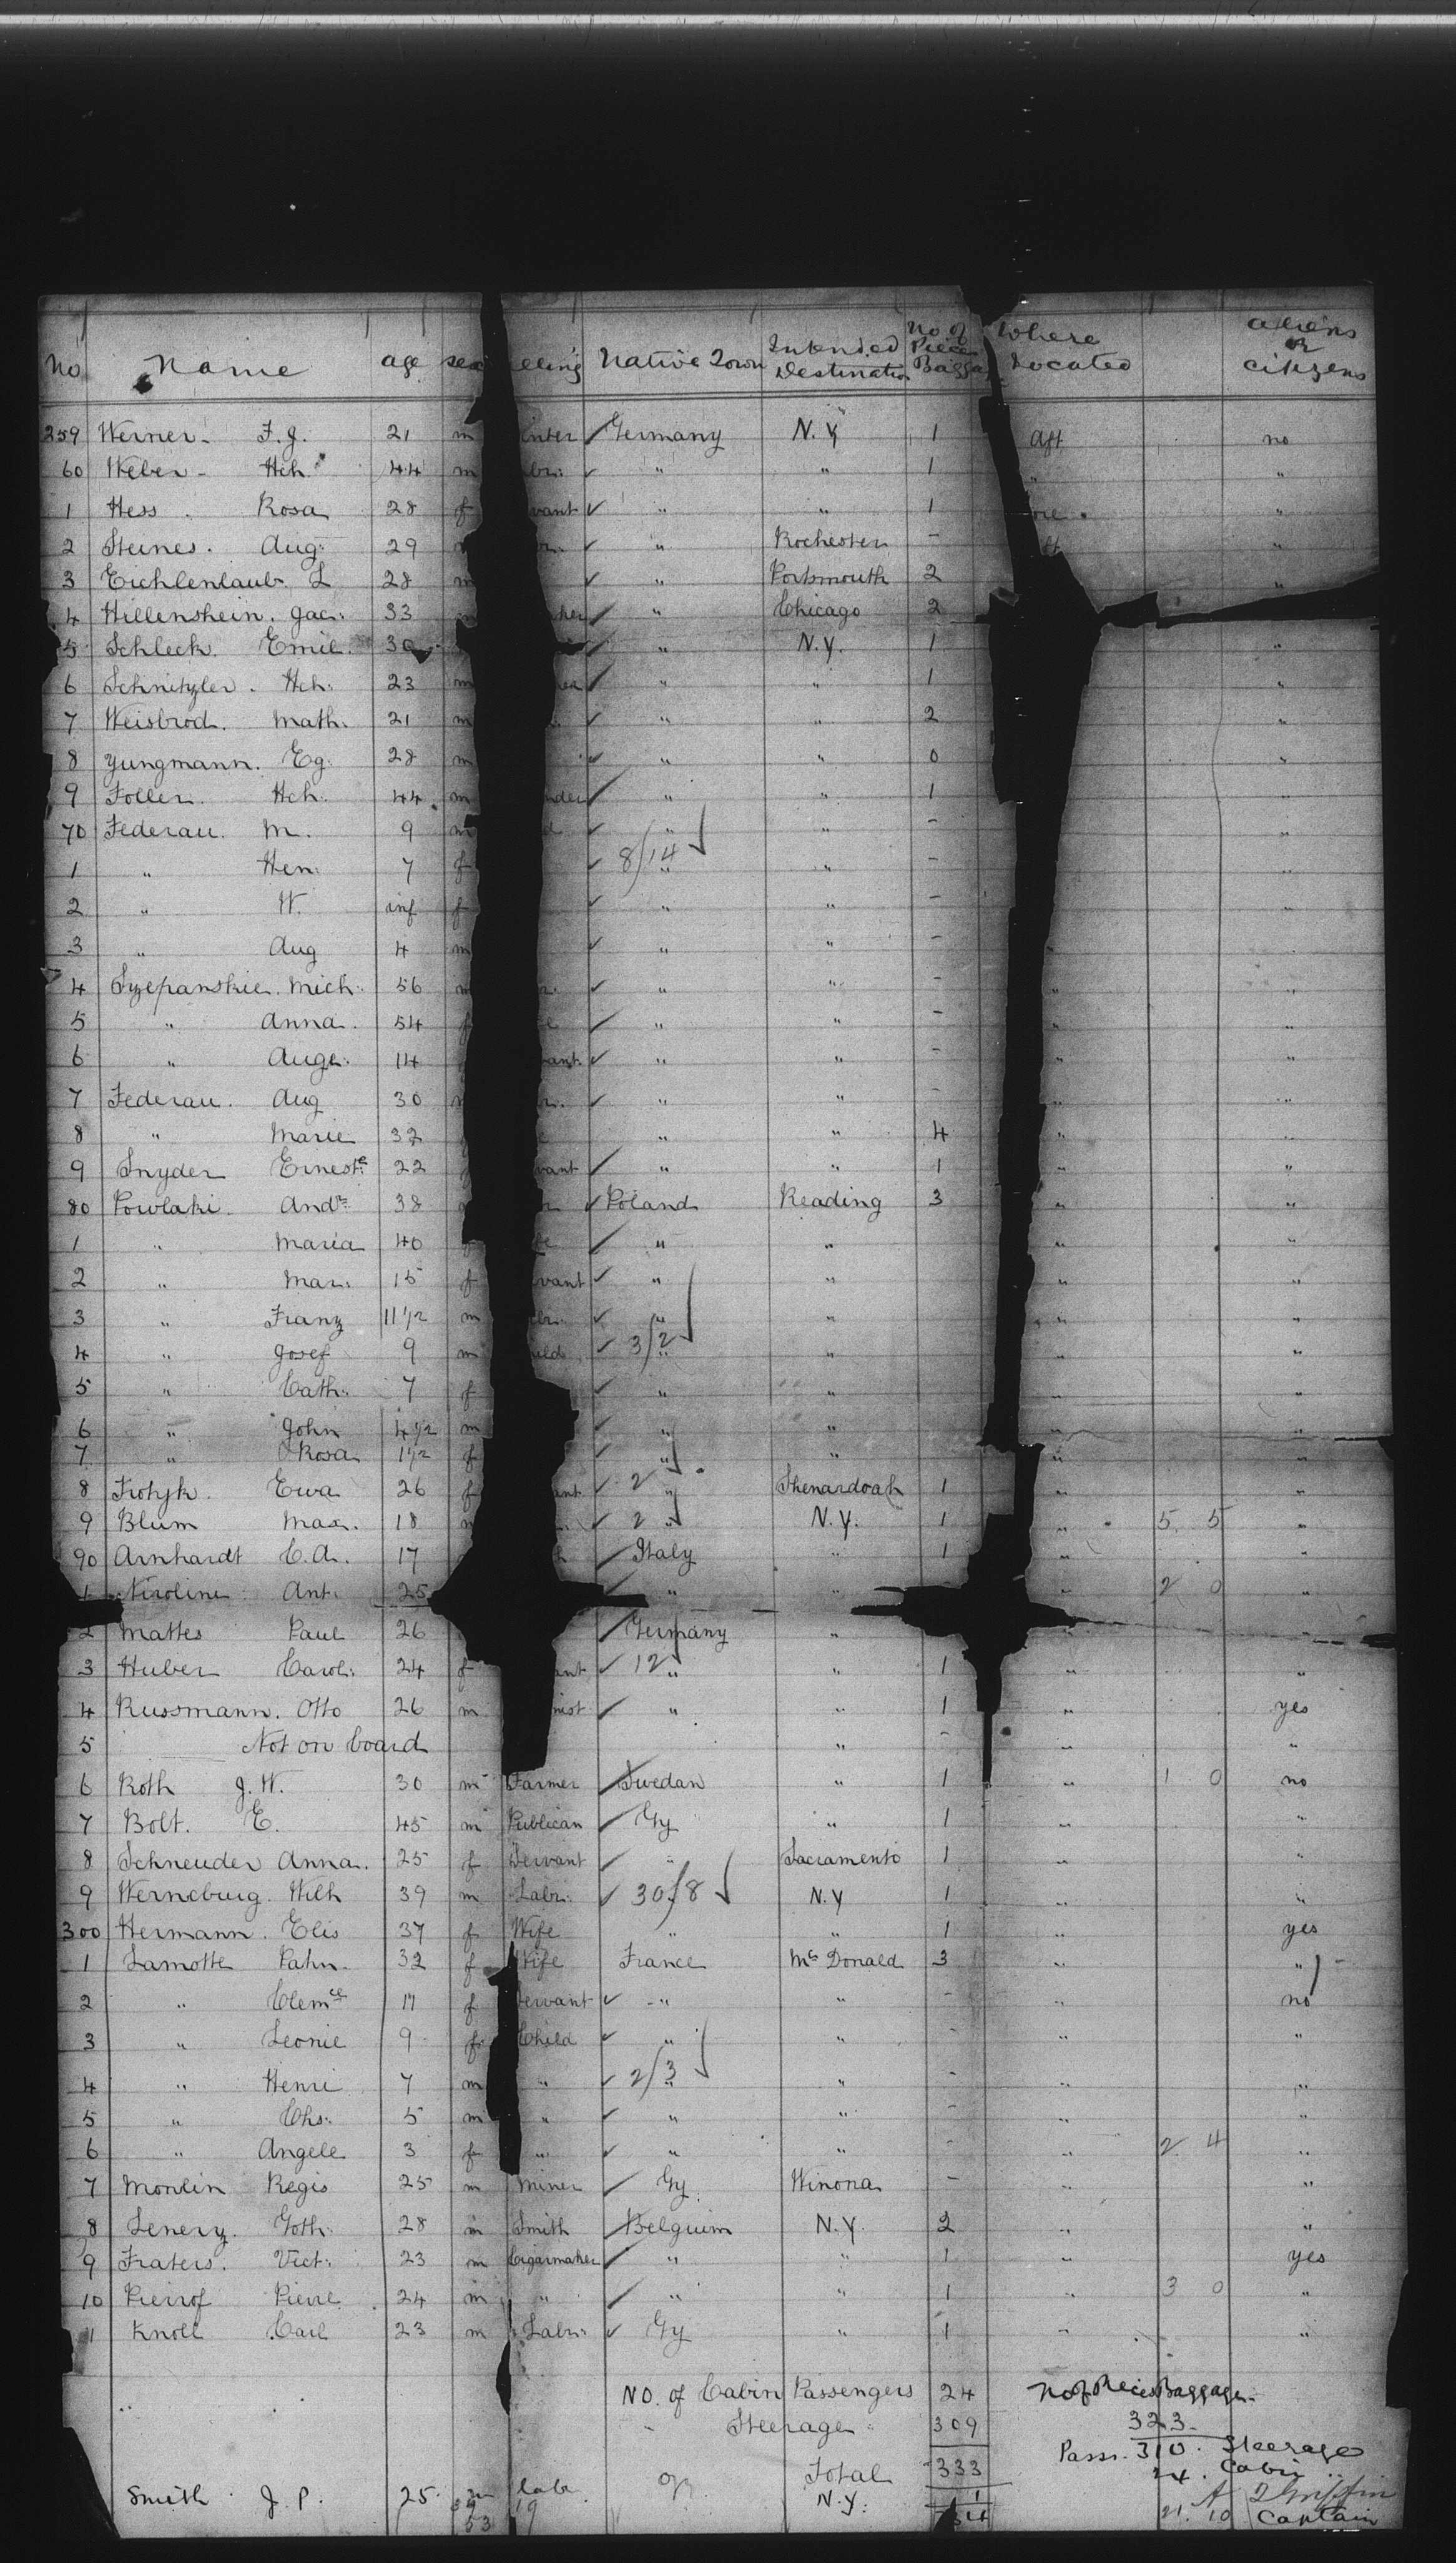 No Name age sex Native Town Intended Destination No of Pieces Baggage Where Located aliens or citizens
259 Werner. F. J. 21 m Germany N.Y 1 Aft no
60 Weber - Hch 44 m ✓ " " 1 " "
1 Hess. Rosa 28 f ✓ " " 1 "
2 Steines. Aug: 29 ✓ " Rochester - "
3 Eichlenlaub L 28 m ✓ " Portsmouth 2 "
4 Hillenshein. Jac: 33 ✓ " Chicago 2
5 Schleck. Emil. 30 ✓ " N.Y. 1 "
6 Schnitzler. Hch: 23 m ✓ " " 1 "
7 Weisbrod. Math: 21 m ✓ " " 2 "
8 Yungmann. Eg: 28 m ✓ " " 0 "
9 Foller. Hch: 44 m ✓ " " 1 "
70 Federau. M. 9 m ✓ " " - "
1 " Hen: 7 f ✓ 8/14 " " - "
2 " W. inf f ✓ " " - "
3 " Aug 4 m ✓ " " - " "
4 Szepanskie. Mich: 56 m ✓ " " - " "
5 " Anna. 54 f ✓ " " - " "
6 " Auge: 14 ✓ " " - " "
7 Federau. Aug 30 ✓ " " - " "
8 " Marie 32 " " 4 " "
9 Snyder Erneste 22 ✓ " " 1 " "
80 Powlaki. Andrs 38 ✓ Poland Reading 3 " "
1 " Maria 40 f ✓ " " " "
2 " Mar: 15 f ✓ " " " "
3 " Franz 11 1/2 m ✓ " " " "
4 " Josef 9 m ✓ 3/2 " " " "
5 " Cath: 7 f ✓ " " " "
6 " John 4 1/2 m ✓ " " " "
7 " Rosa 1 1/2 f ✓ " " " "
8 Ewa 26 f ✓ 2 " Shenardoah 1 " "
9 Blum Max. 18 ✓ 2 " N.Y. 1 " 5 5 "
90 Arnhardt C. A. 17 ✓ Italy " 1 "
1 Niroline Ant: 25 ✓ " " " 2 0 "
2 Mattes Paul 26 ✓ Germany " " "
3 Huber Carol: 24 f ✓ 12 " " 1 " "
4 Russmann. Otto 26 m ✓ " " 1 " yes
5 Not on board " - " "
6 Roth J. W. 30 m Farmer ✓ Swedan " 1 " 1 0 no
7 Bolt. E. 45 m Publican ✓ Gy " 1 " "
8 Schneuder Anna. 25 f Servant ✓ " Sacramento 1 " "
9 Werneburg. Wilh 39 m Labr: ✓ 30/8 N.Y 1 " "
300 Hermann. Elis 37 f Wife " " 1 " yes
1 Lamotte Pahn. 32 f Wife France Mc Donald 3 " "
2 " Clemce 17 f Servant ✓ " " - " no
3 " Leonie 9 f Child ✓ " " - " "
4 " Henri 7 m " ✓ 2/3 " " - " "
5 " Chs: 5 m " ✓ " " - " "
6 " Angele 3 f " ✓ " " - " 2 4 "
7 Monlin Regis 25 m Miner ✓ Gy. Winona - " "
8 Lenerz. Goth: 28 m Smith ✓ Belguim N.Y. 2 " "
9 Fraters. Vict: 23 m Cigarmaker ✓ " " 1 " yes
10 Pierrof Pierre 24 m " ✓ " " 1 " 3 0 "
1 Knoll Carl 23 m Labr: ✓ Gy " 1 " "
No. of Cabin Passengers 24 No of Pieces Baggage.
" Steerage " 309 323.
Pass. 310. Steerage
Total 333 24. Cabin "
Smith J. P. 25 m lab. N.Y: 1
53 19 21. 10 Captain